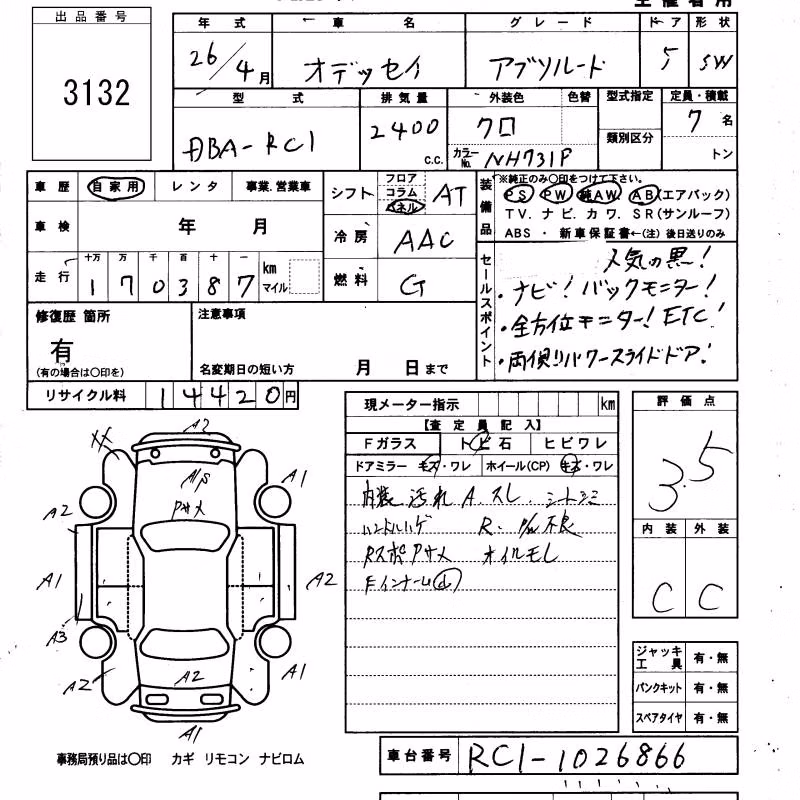 出品番号
3132
年式 車名 グレード ドア 形状
26/4月 オデッセイ アブソルード 5 SW
型式 排気量 外装色 色替 型式指定 定員・積載
DBA-RC1 2400 c.c. クロ 類別区分 7名
カラーNo. NH731P トン
車歴 自家用 レンタ 事業.営業車
シフト フロア コラム パネル AT
装備品 ※純正のみ〇印をつけて下さい。
PS PW 純AW AB(エアバック)
TV. ナビ. カワ. SR(サンルーフ)
ABS ・ 新車保証書←(注) 後日送りのみ
車検 年 月
冷房 AAC
走行 十万 万 千 百 十 一
1 7 0 3 8 7 km マイル
燃料 G
セールスポイント
人気の黒!
・ナビ! バックモニター!
・全方位モニター! ETC!
・両側パワースライドドア!
修復歴 箇所
有
(有の場合は〇印を)
注意事項
名変期日の短い方 月 日まで
リサイクル料 14420円
現メーター指示 km
【査定員記入】
Fガラス トビ石 ヒビワレ
ドアミラー キズ・ワレ ホイール(CP) キズ・ワレ
内装 汚れ A.スレ. シートシミ
ハンドルハゲ R. 不良
Rスポ アサメ オイルモレ
Fインナー
評価点
3.5
内装 外装
C C
ジャッキ工具 有・無
パンクキット 有・無
スペアタイヤ 有・無
A2
XX
A1
A2
A1
A2
A3
A2
A2
A1
A1
事務局預り品は〇印 カギ リモコン ナビロム
車台番号 RC1-1026866